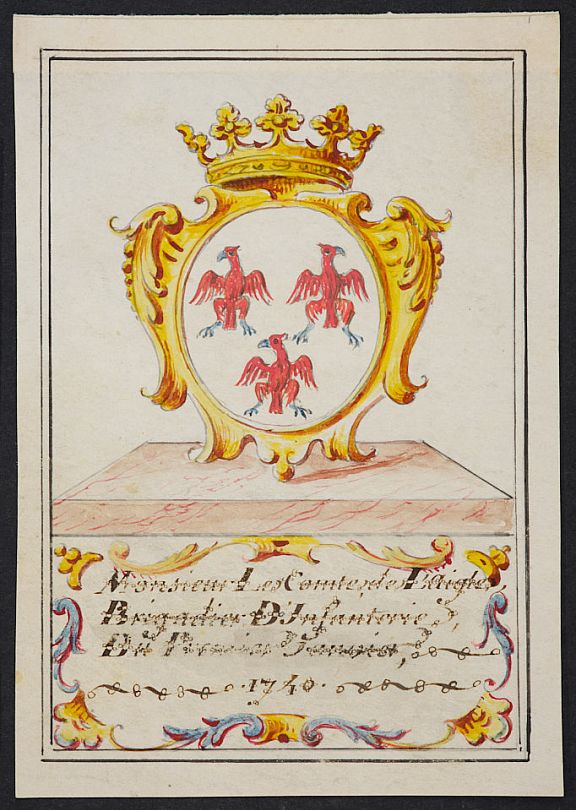 Monsieur Les Comtes des l'Aigle,
Brigadier D'Infanterie,
Du Premier Janvier,
.1740.